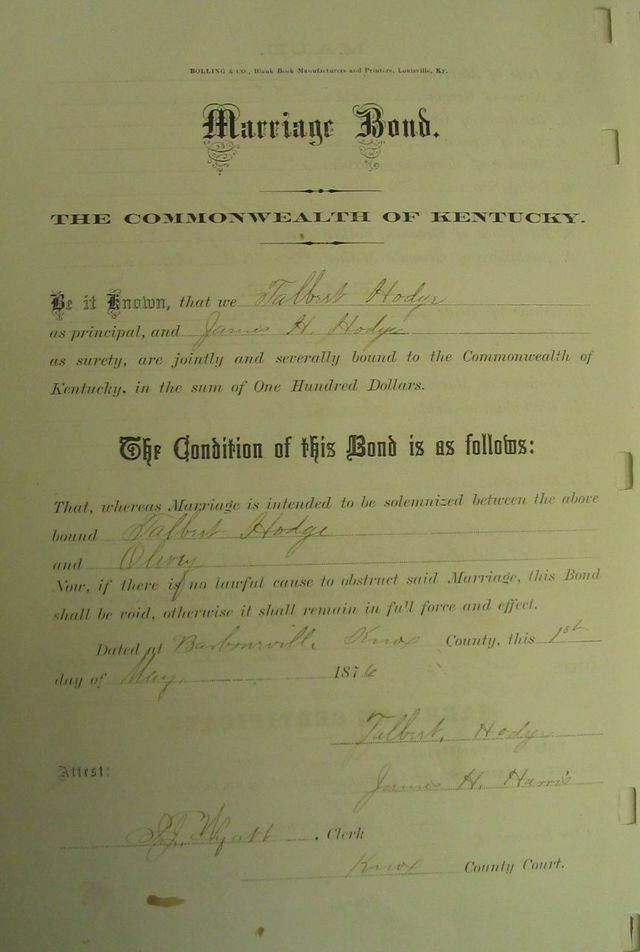 BOLLING & CO., Blank Book Manufacturers and Printers, Louisville, Ky.
Marriage Bond.
THE COMMONWEALTH OF KENTUCKY.
Be it Known, that we Talbert Hodge
as principal, and James H. Hodge
as surety, are jointly and severally bound to the Commonwealth of
Kentucky, in the sum of One Hundred Dollars.
The Condition of this Bond is as follows:
That, whereas Marriage is intended to be solemnized between the above
bound Talbert Hodge
and
Now, if there is no lawful cause to obstruct said Marriage, this Bond
shall be void, otherwise it shall remain in full force and effect.
Dated at Barbourville Knox County, this 1st
day of May 1876
Talbert Hodge
Attest:
James H. Harris
Wyatt, Clerk
Knox County Court.